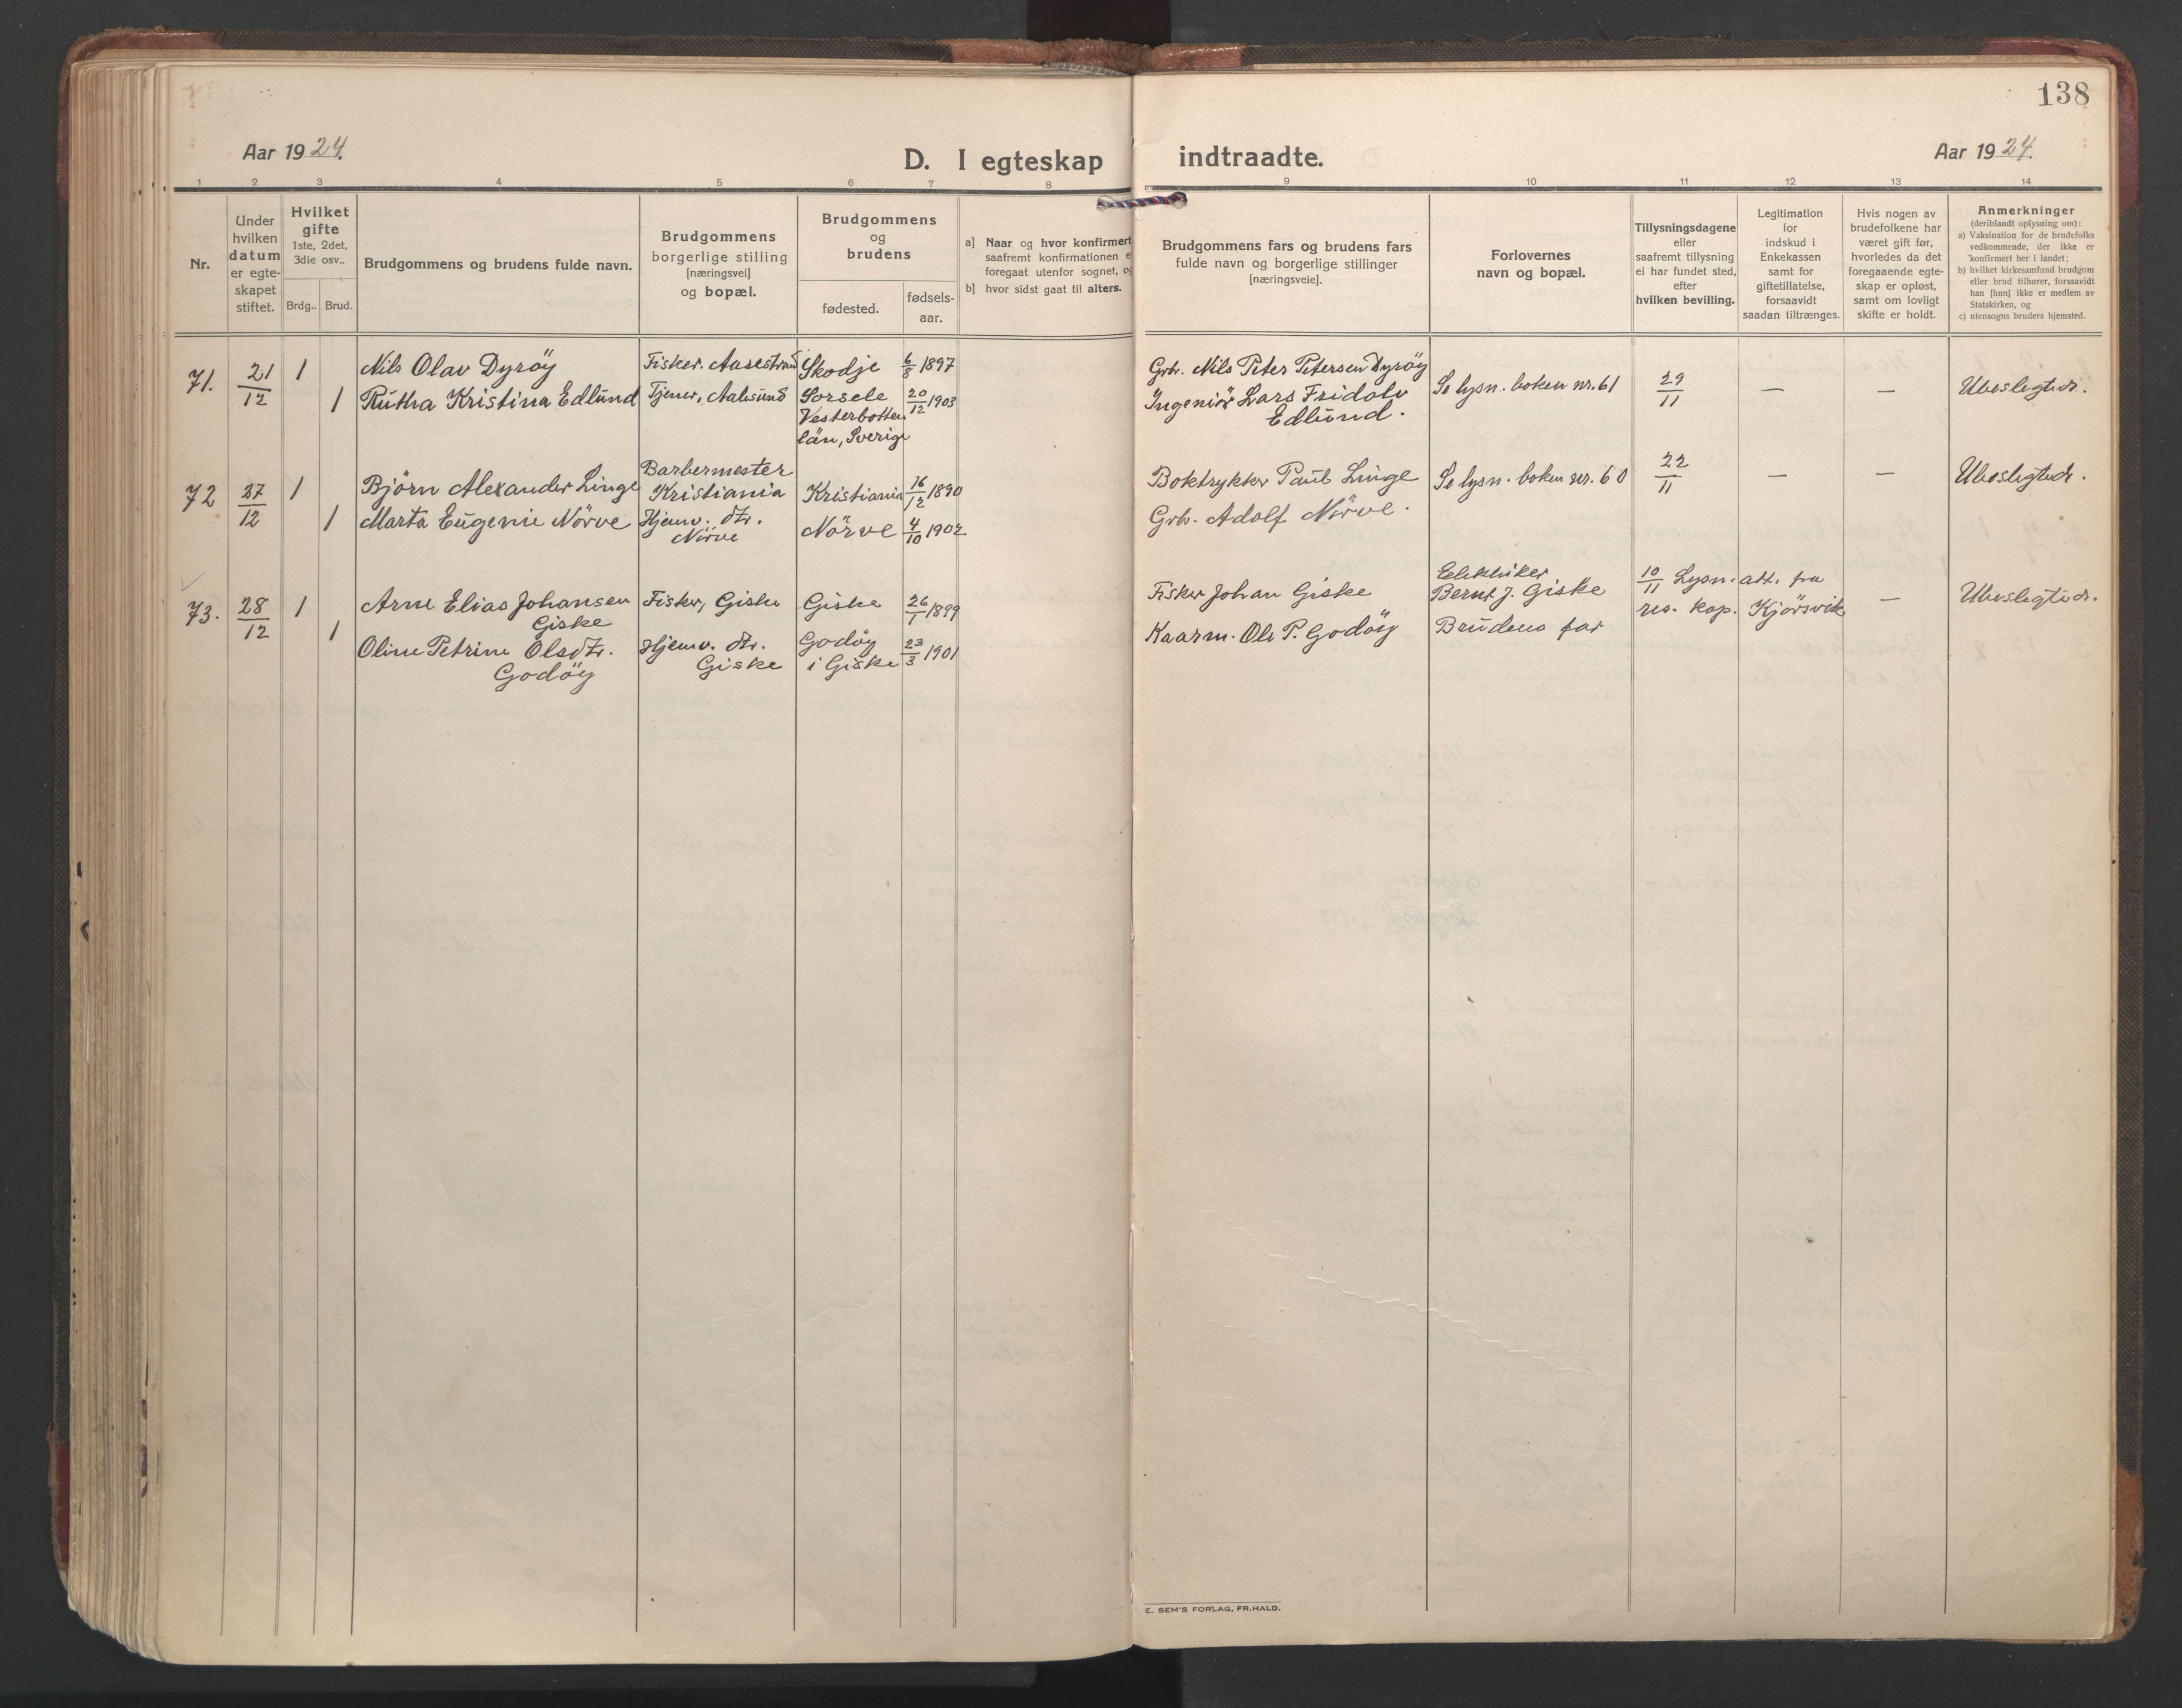 138
Aar 1924.
D. I egteskap indtraadte.
Aar 1924.
1 2 3 4 5 6 7 8 9 10 11 12 13 14
Nr.
Under
hvilken
datum
er egte-
skapet
stiftet.
Hvilket
gifte
1ste, 2det,
3die osv..
Brdg.. Brud.
Brudgommens og brudens fulde navn.
Brudgommens
borgerlige stilling
[næringsvei]
og bopæl.
Brudgommens
og
brudens
fødested.
fødsels-
aar.
a] Naar og hvor konfirmert
saafremt konfirmationen e
foregaat utenfor sognet, og
b] hvor sidst gaat til alters.
Brudgommens fars og brudens fars
fulde navn og borgerlige stillinger
[næringsveie].
Forlovernes
navn og bopæl.
Tillysningsdagene
eller
saafremt tillysning
ei har fundet sted,
efter
hvilken bevilling.
Legitimation
for
indskud i
Enkekassen
samt for
giftetillatelse,
forsaavidt
saadan tiltrænges.
Hvis nogen av
brudefolkene har
været gift før,
hvorledes da det
foregaaende egte-
skap er opløst,
samt om lovligt
skifte er holdt.
Anmerkninger
(deriblandt oplysning om):
a) Vaksination for de brudefolks
vedkommende, der ikke er
konfirmert her i landet;
b) hvilket kirkesamfund brudgom
eller brud tilhører, forsaavidt
han [hun] ikke er medlem av
Statskirken, og
c) utensogns bruders hjemsted.
71. 21/12 1 Nils Olav Dyröy Fisker. Aasestrand Skodje 6/8 1897 Grb. Nils Peter Petersen Dyröy Se lysn. boken nr. 61 29/11 — — Ubeslegtedr.
1 Rutha Kristina Edlund Tjener, Aalesund Sorsele 20/12 1903 Ingeniör Lars Fridolv
Vesterbotten Edlund.
län, Sverige
72 27/12 1 Björn Alexander Linge Barbermester
Kristiania Kristiania 16/12 1890 Boktrykker Paul Linge Se lysn. boken nr. 60 22/11 — — Ubeslegtedr.
1 Marta Eugenie Nörve Hjemv. dtr.
Nörve Nörve 4/10 1902 Grb. Adolf Nörve.
73. 28/12 1 Arne Elias Johansen
Giske Fisker, Giske Giske 26/1 1899 Fisker Johan Giske Elektriker
Bernt J. Giske 10/11 Lysn. att. fra
res. kap. Kjörsvik — Ubeslegtedr.
1 Oline Petrine Olsdtr.
Godöy Hjemv. dtr.
Giske Godöy
i Giske 23/3 1901 Kaarm. Ole P. Godöy Brudens far
E. SEM'S FORLAG, FR.HALD.